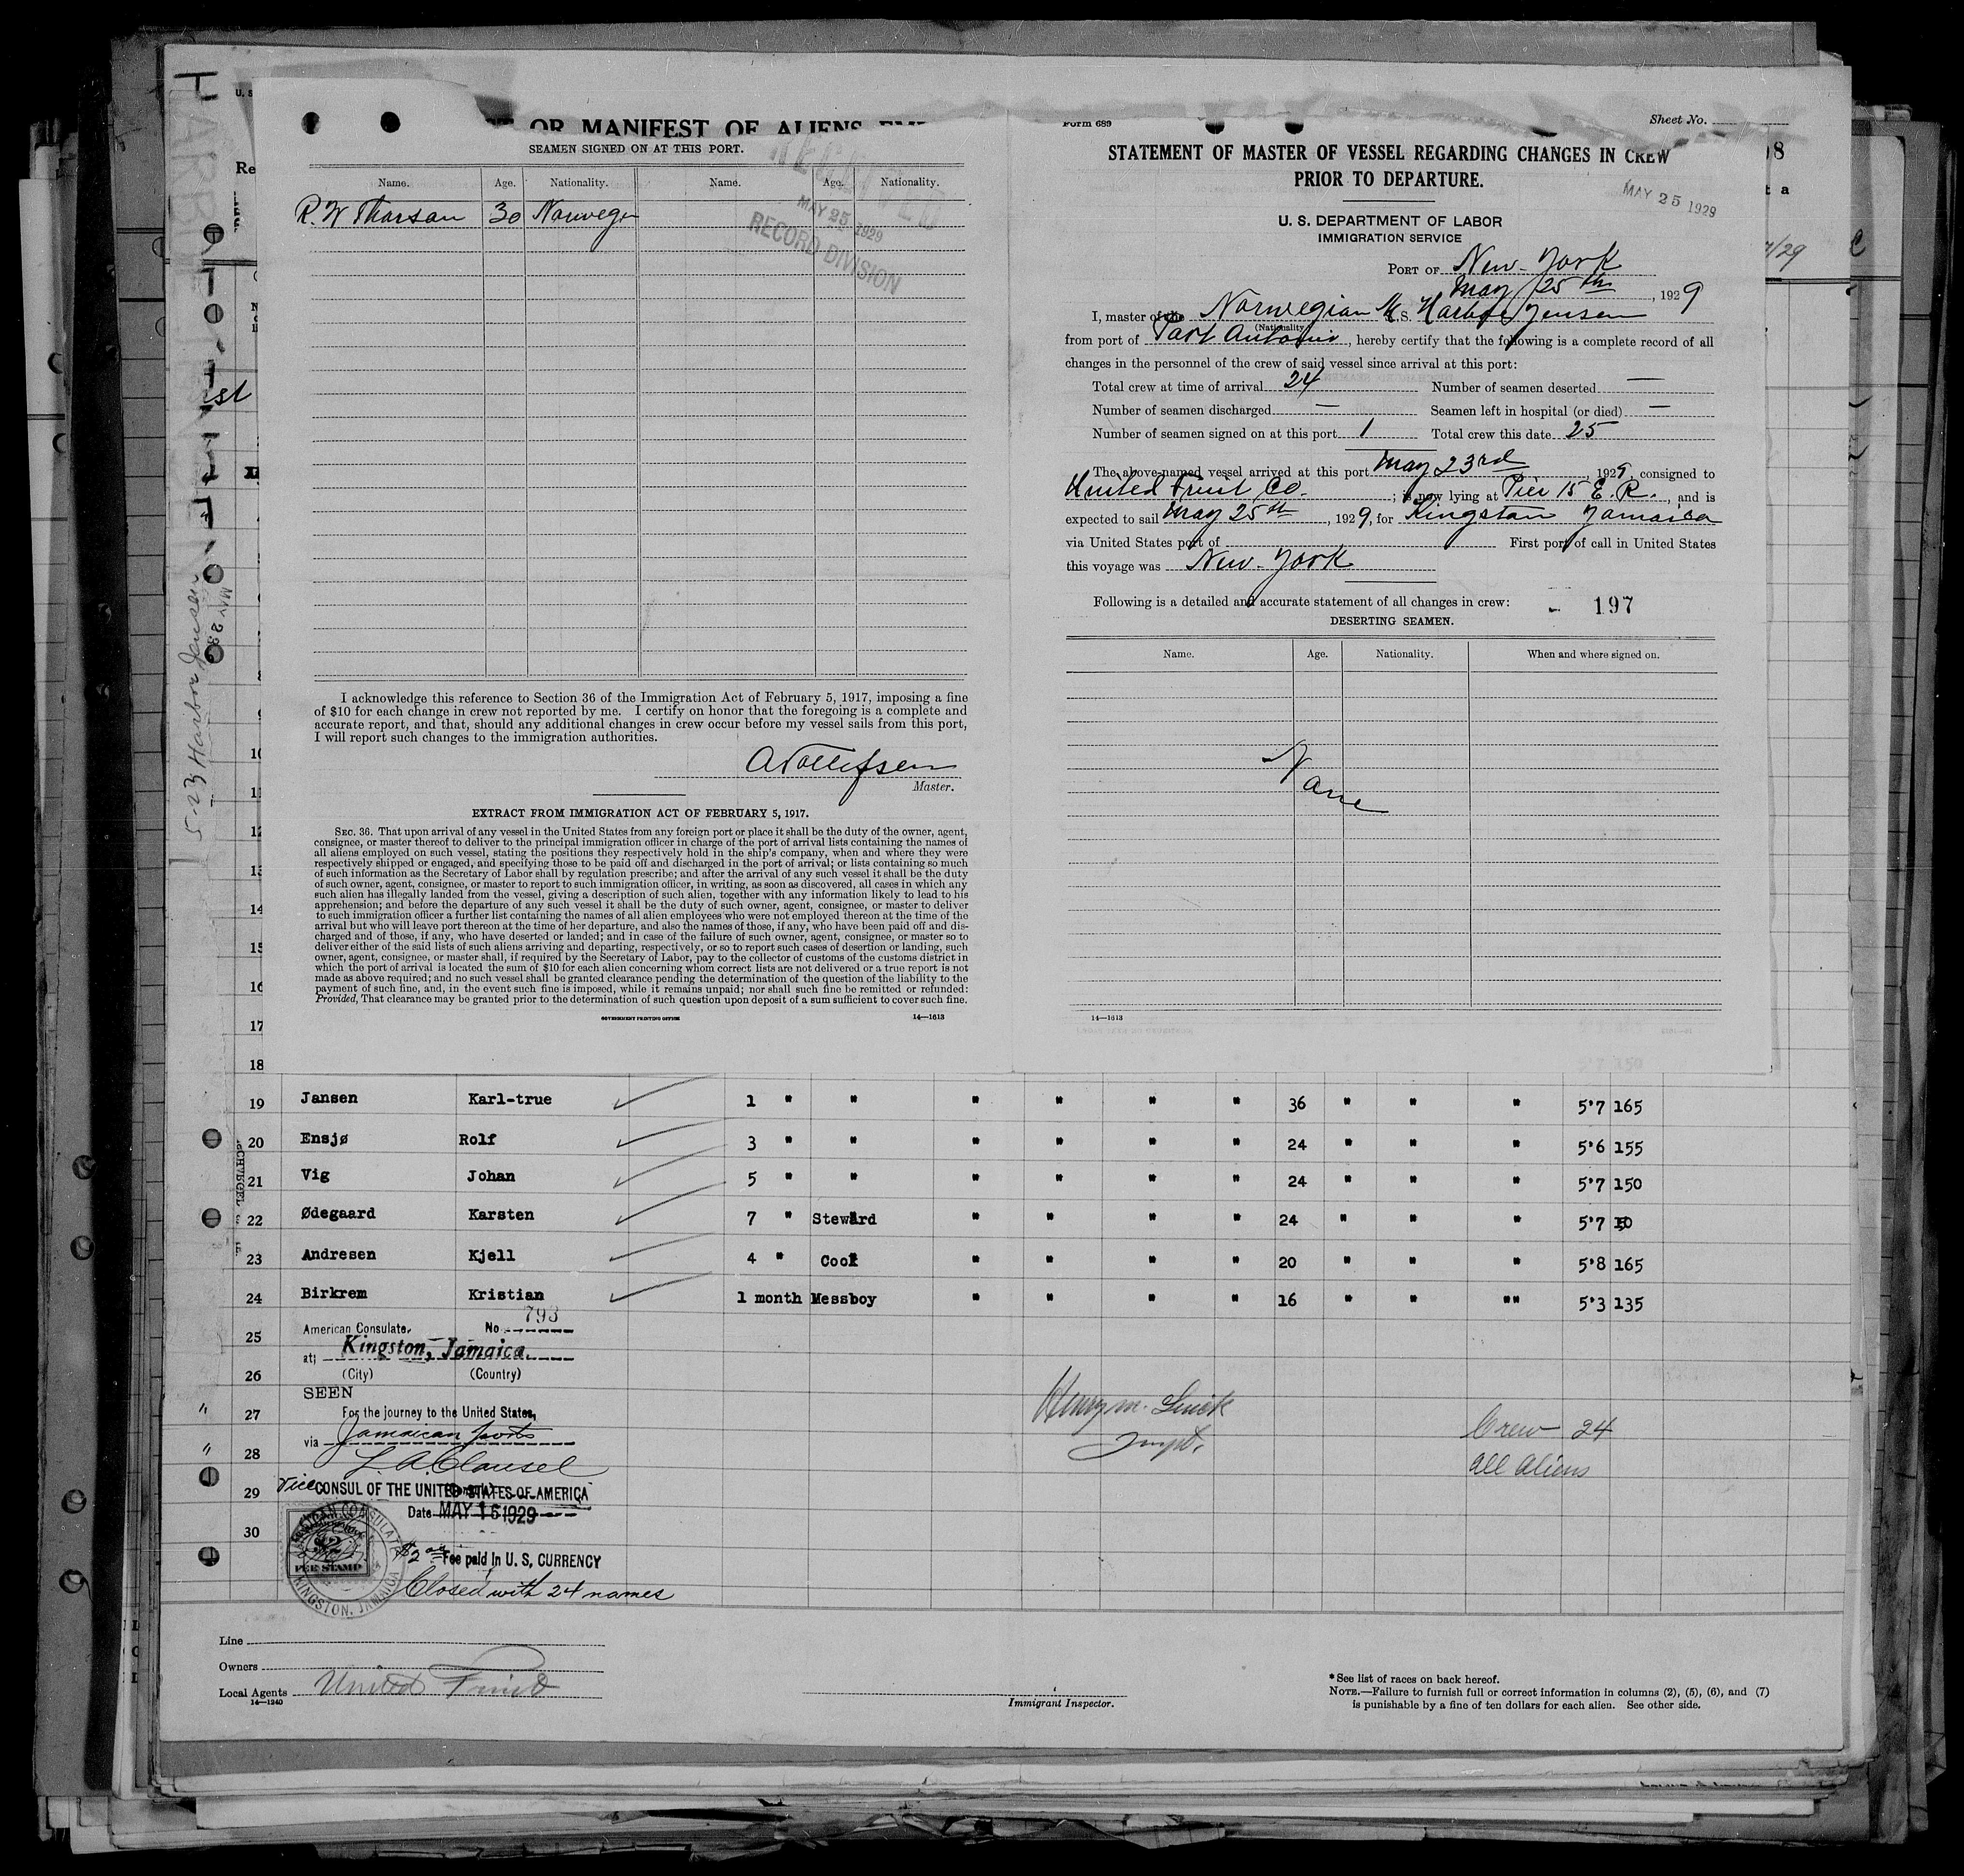 OR MANIFEST OF ALIENS
SEAMEN SIGNED ON AT THIS PORT.
Name. Age. Nationality. Name. Age. Nationality.
R. W Tharsan 30 Norwegen
RECEIVED
MAY 25 1929
RECORD DIVISION
I acknowledge this reference to Section 36 of the Immigration Act of February 5, 1917, imposing a fine
of $10 for each change in crew not reported by me. I certify on honor that the foregoing is a complete and
accurate report, and that, should any additional changes in crew occur before my vessel sails from this port,
I will report such changes to the immigration authorities.
Master.
EXTRACT FROM IMMIGRATION ACT OF FEBRUARY 5, 1917.
SEC. 36. That upon arrival of any vessel in the United States from any foreign port or place it shall be the duty of the owner, agent,
consignee, or master thereof to deliver to the principal immigration officer in charge of the port of arrival lists containing the names of
all aliens employed on such vessel, stating the positions they respectively hold in the ship's company, when and where they were
respectively shipped or engaged, and specifying those to be paid off and discharged in the port of arrival; or lists containing so much
of such information as the Secretary of Labor shall by regulation prescribe; and after the arrival of any such vessel it shall be the duty
of such owner, agent, consignee, or master to report to such immigration officer, in writing, as soon as discovered, all cases in which any
such alien has illegally landed from the vessel, giving a description of such alien, together with any information likely to lead to his
apprehension; and before the departure of any such vessel it shall be the duty of such owner, agent, consignee, or master to deliver
to such immigration officer a further list containing the names of all alien employees who were not employed thereon at the time of the
arrival but who will leave port thereon at the time of her departure, and also the names of those, if any, who have been paid off and dis-
charged and of those, if any, who have deserted or landed; and in case of the failure of such owner, agent, consignee, or master so to
deliver either of the said lists of such aliens arriving and departing, respectively, or so to report such cases of desertion or landing, such
owner, agent, consignee, or master shall, if required by the Secretary of Labor, pay to the collector of customs of the customs district in
which the port of arrival is located the sum of $10 for each alien concerning whom correct lists are not delivered or a true report is not
made as above required; and no such vessel shall be granted clearance pending the determination of the question of the liability to the
payment of such fine, and, in the event such fine is imposed, while it remains unpaid; nor shall such fine be remitted or refunded:
Provided, That clearance may be granted prior to the determination of such question upon deposit of a sum sufficient to cover such fine.
GOVERNMENT PRINTING OFFICE 14—1613
Form 689 Sheet No.
STATEMENT OF MASTER OF VESSEL REGARDING CHANGES IN CREW
PRIOR TO DEPARTURE.
MAY 25 1929
U. S. DEPARTMENT OF LABOR
IMMIGRATION SERVICE
PORT OF New-York
May 25th, 1929
I, master of the Norwegian M.S. Harboe Jensen
(Nationality)
from port of Port Antonio, hereby certify that the following is a complete record of all
changes in the personnel of the crew of said vessel since arrival at this port:
Total crew at time of arrival 24 Number of seamen deserted —
Number of seamen discharged — Seamen left in hospital (or died) —
Number of seamen signed on at this port 1 Total crew this date 25
The above-named vessel arrived at this port May 23rd, 1929, consigned to
United Fruit Co. ; is now lying at Pier 15 E. R., and is
expected to sail May 25th, 1929, for Kingston Jamaica
via United States port of First port of call in United States
this voyage was New-York
Following is a detailed and accurate statement of all changes in crew: - 197
DESERTING SEAMEN.
Name. Age. Nationality. When and where signed on.
None
14—1613
5-23 Harboe Jensen
10
11
12
13
14
15
16
17
18
19 Jansen Karl-true 1 " " " " " " 36 " " " 5'7 165
20 Ensjø Rolf 3 " " " " " " 24 " " " 5'6 155
21 Vig Johan 5 " " " " " " 24 " " " 5'7 150
22 Ødegaard Karsten 7 " Steward " " " " 24 " " " 5'7
23 Andresen Kjell 4 " Cook " " " " 20 " " " 5'8 165
24 Birkrem Kristian 1 month Messboy " " " " 16 " " "" 5'3 135
25 American Consulate, No 793
at; Kingston, Jamaica.
26 (City) (Country)
SEEN
27 For the journey to the United States,
via Jamaican ports
28 L. A. Clausel
29 Vice CONSUL OF THE UNITED STATES OF AMERICA
Date MAY 15 1929
30
$2 FEE STAMP
AMERICAN CONSULATE KINGSTON, JAMAICA
$2.00 Fee paid in U. S, CURRENCY
Closed with 24 names
Crew 24
all aliens
Line
Owners
Local Agents United Fruit
14—1240
Immigrant Inspector.
*See list of races on back hereof.
NOTE.—Failure to furnish full or correct information in columns (2), (5), (6), and (7)
is punishable by a fine of ten dollars for each alien. See other side.